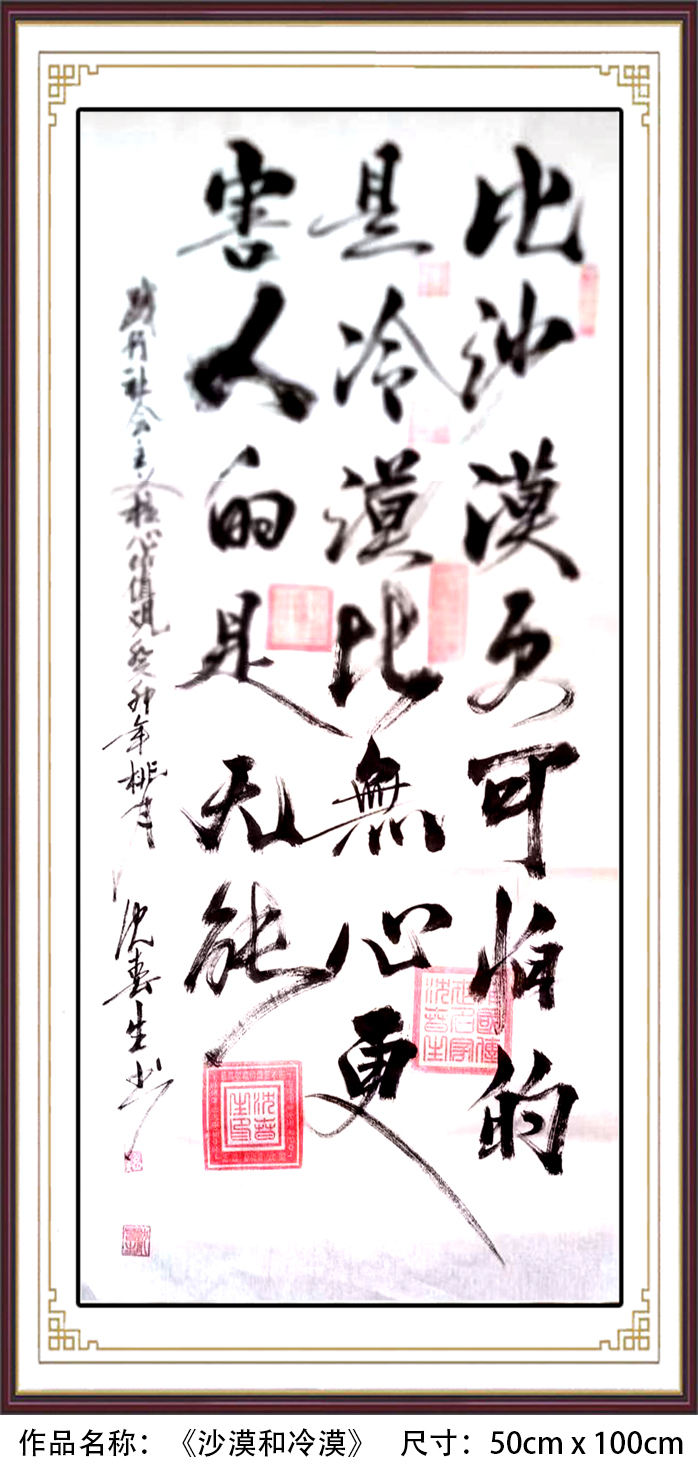 比沙漠更可怕的
是冷漠比無心更
害人的是无能
践行社会主义核心价值观癸卯年桃月
沈春生书
作品名称：《沙漠和冷漠》 尺寸：50cm x 100cm